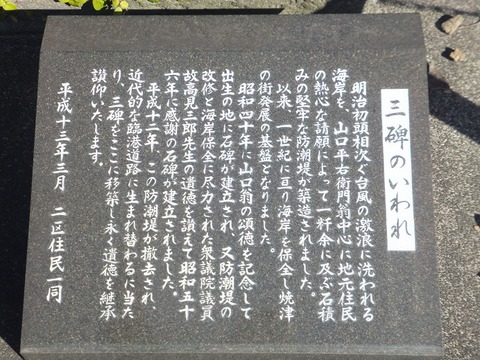 三碑のいわれ
明治初頭相次ぐ台風の激浪に洗われる
海岸を、山口平右衛門翁中心に地元住民
の熱心な請願によって一粁余に及ぶ石積
みの堅牢な防潮堤が築造されました。
以来、一世紀に亘り海岸を保全し焼津
の街発展の基盤となりました。
昭和四十年に山口翁の頌徳を記念して
出生の地に石碑が建立され、又防潮堤の
改修と海岸保全に尽力された衆議院議員
故高見三郎先生の遺徳を讃えて昭和五十
六年に感謝の石碑が建立されました。
平成十二年、この防潮堤が撤去され、
近代的な臨港道路に生まれ替わるに当た
り、三碑をここに移築し永く遺徳を継承
讃仰いたします。
平成十三年三月　二区住民一同